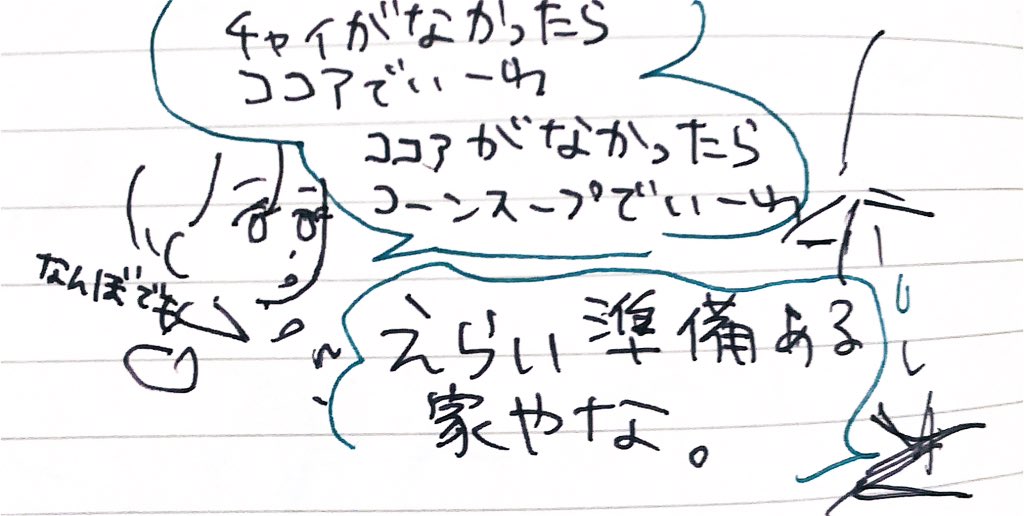 チャイがなかったら
ココアでいーわ
ココアがなかったら
コーンスープでいーわ
なんぼでも
えらい準備ある
家やな。